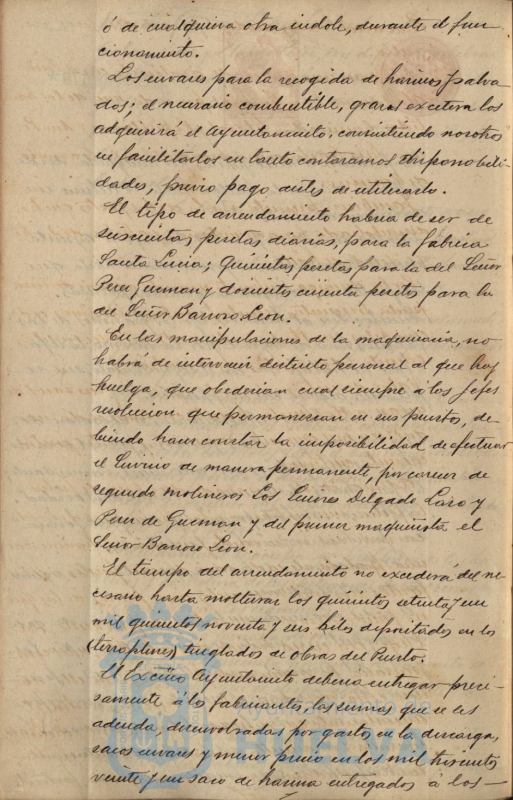 ó de cualquiera otra indole, durante el fun-
cionamiento.
Los envases para la recogida de harinas y salva-
dos; el necesario combustible, grasas excetera los
adquirirá el Ayuntamiento, consintiendo nosotros
en facilitarlos en tanto contaramos disponibili-
dades, previo pago antes de utilizarlo.
El tipo de arrendamiento habria de ser de
seiscientas pesetas diarias, para la fábrica
Santa Lucia; Quinientas pesetas para la del Señor
Perez Guzman y doscientos cincuenta pesetas para la
del Señor Barroso Leon.
En las manipulaciones de la maquinaria, no
habrá de intervenir distinto personal al que hoy
huelga, que obedecerian cual siempre á los Jefes
resolucion que permanezcan en sus puestos, de-
biendo hacer constar la imposibilidad de efectuar
el servicio de manera permanente, por carecer de
segundo molineros Los Señores Delgado Lazo y
Perez de Guzman y del primer maquinista el
Señor Barroso Leon.
El tiempo del arrendamiento no excederá del ne-
cesario hasta molturar los quinientos setenta y un
mil quinientos noventa y seis kilos depositados en los
(terraplenes) tinglados de Obras del Puerto.
El Excmo Ayuntamiento deberia entregar preci-
samente á los fabricantes, las sumas que se les
adeuda, desembolsadas por gastos en la descarga,
sacos envases y menor precio en los mil trescientos
veinte y un saco de harina entregados á los
HUELVA